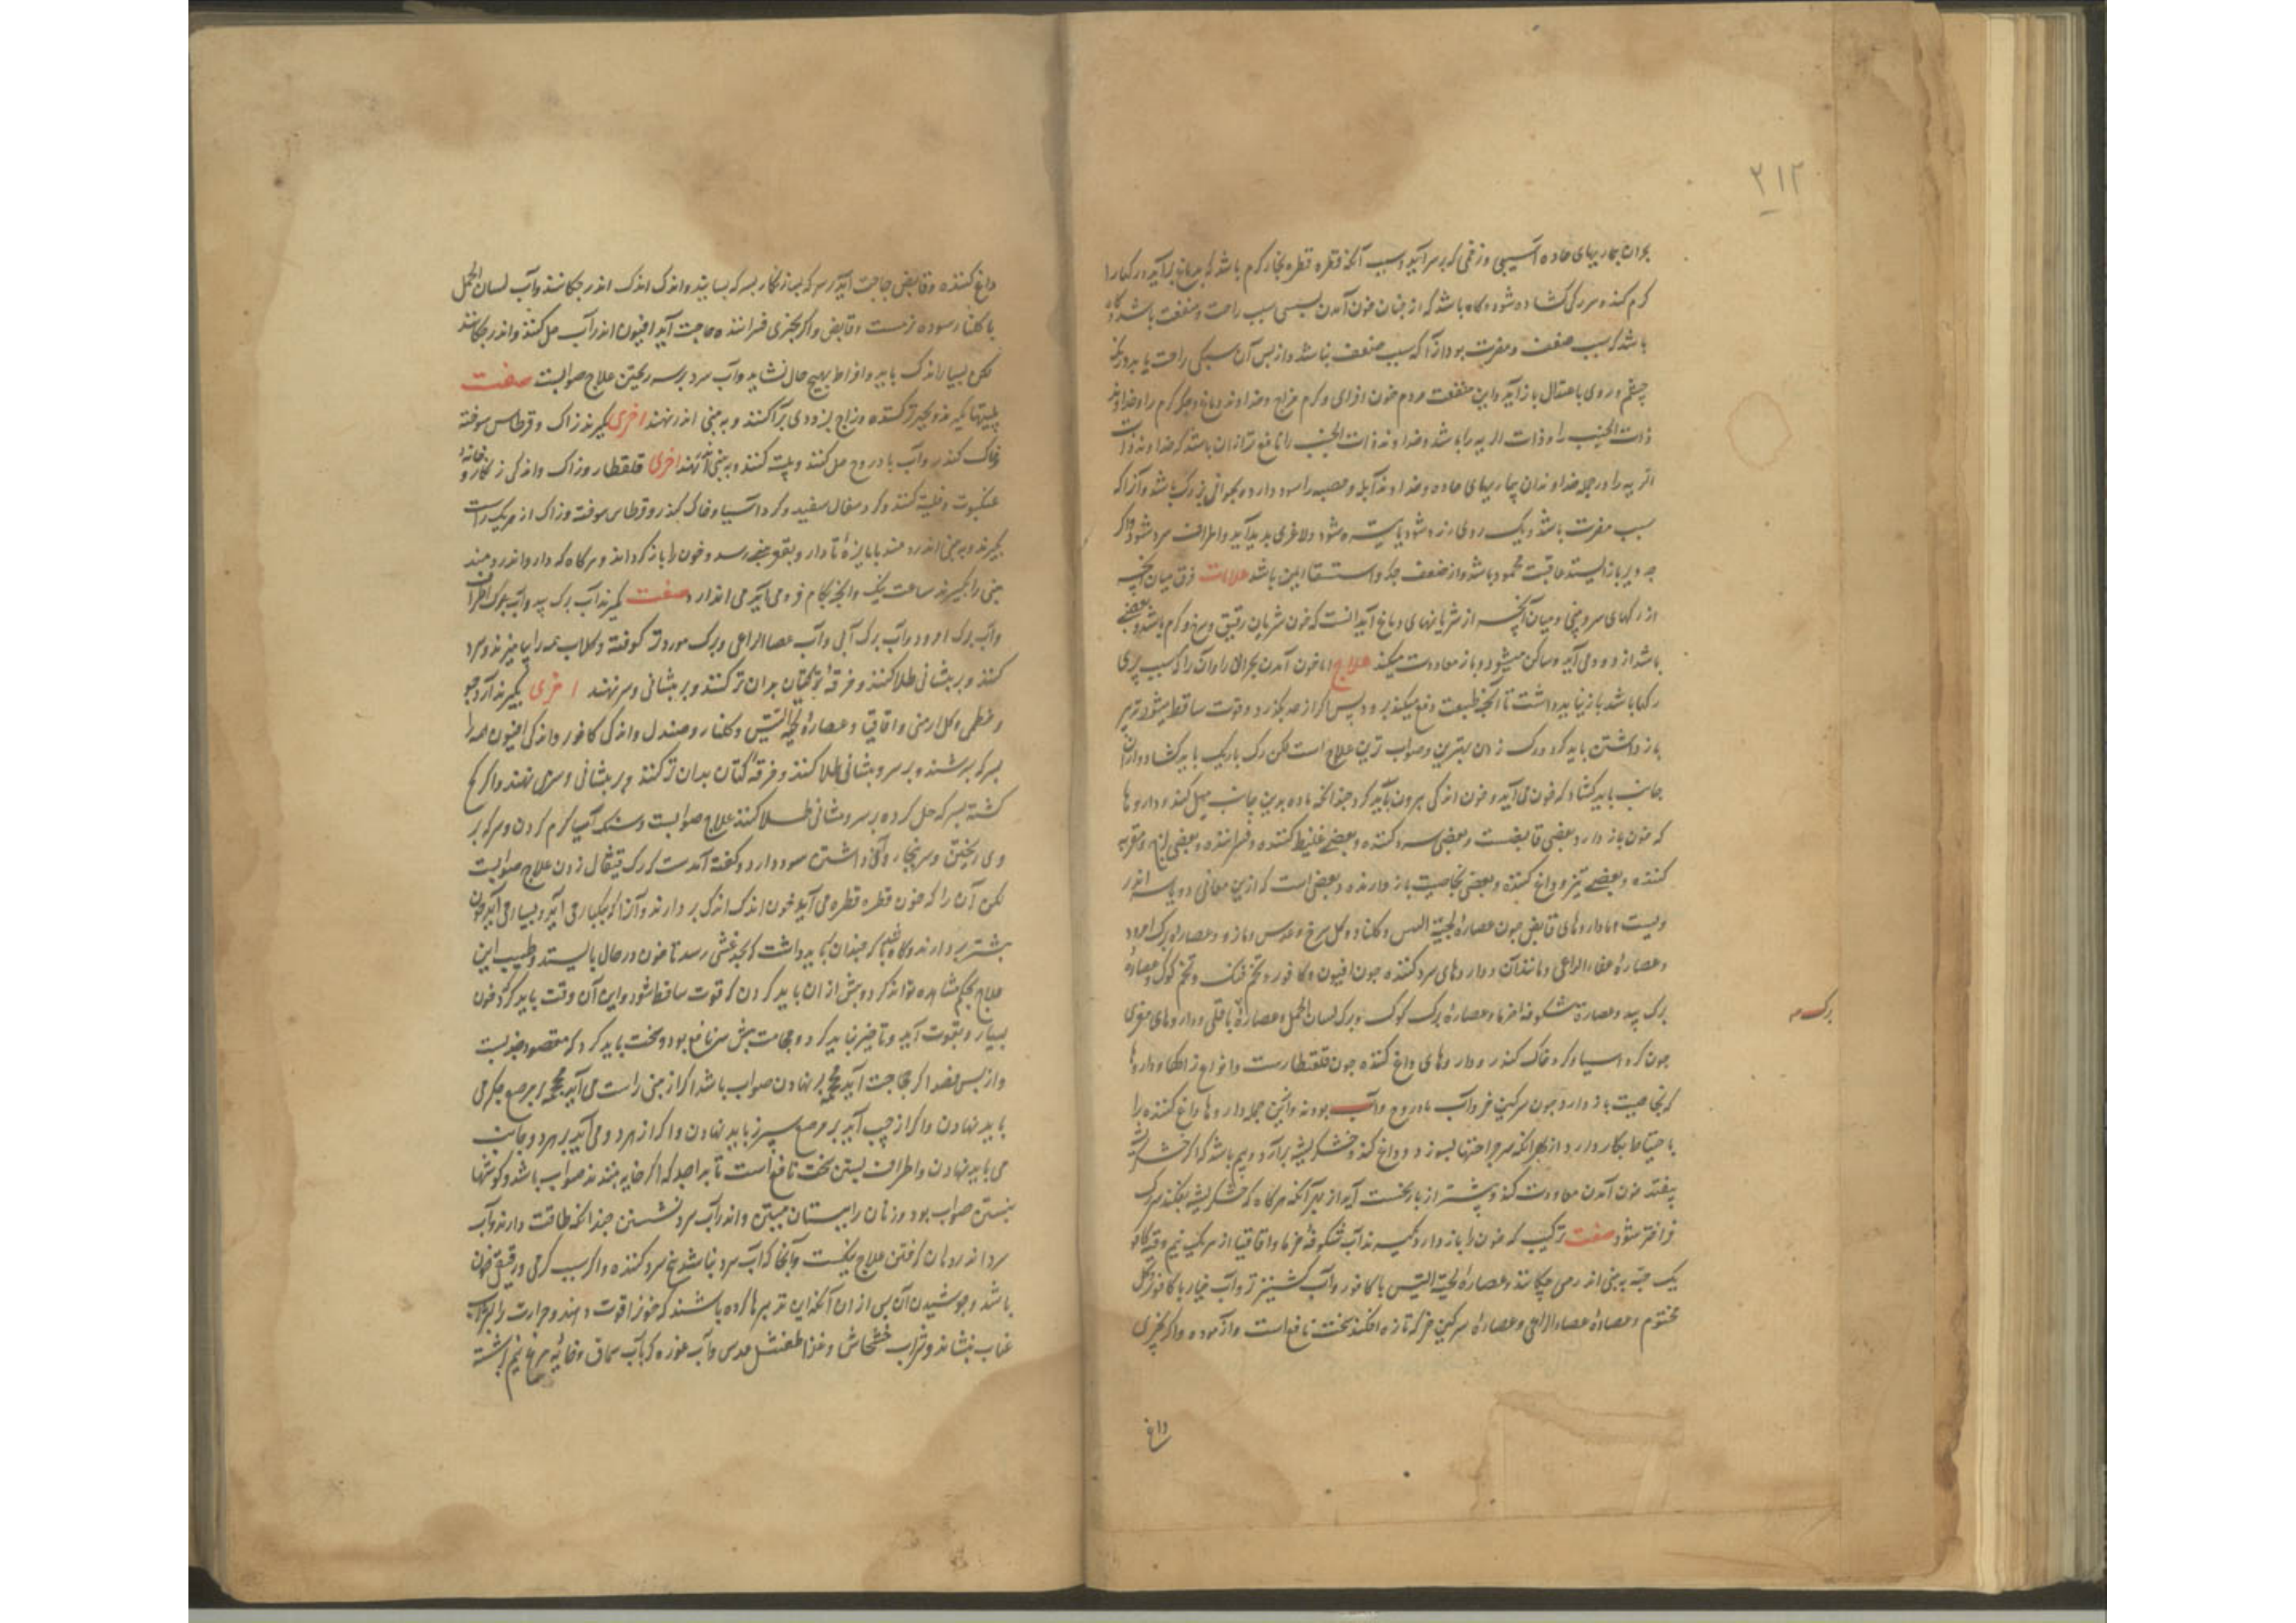 ۲۱۲
بحران بیماریهای حاده آسیبی و زخمی که بر سر آید و سبب آنکه قطره قطره بخار گرم باشد که بدماغ برآید و رگها را
گرم کند و سر رگی گشاده شود و گاه باشد که از چنان خون آمدن سبب راحت و منفعت باشد و گاه
باشد که سبب ضعف و مضرت بود و آنرا که سبب ضعف نباشد و از پس آن سبکی راحت یابد و رنگ
چشم و روی باعتدال بازآید و این منفعت مردم خون افزای و گرم مزاج و خداوند دماغ و جگر گرم را و خداوند
ذات الجنب را و ذات الریه را باشد و خداوند ذات الجنب را نافع‌تر از آن باشد که خداوند ذات
الریه را و در جمله خداوندان بیماریهای حاده و خداوند آبله و حصبه را سود دارد و بحرانی بزرگ باشد و آنرا که
سبب مضرت باشد رنگ روی زرد شود یا تیره شود و لاغری پدید آید و اطراف سرد شود و اگر
چه دیر باز ایستد عاقبت محمود باشد و از ضعف جگر و استسقا ایمن باشد علامات فرق میان آنچه
از رگهای سر و بینی و میان آنچه از شریانهای دماغ آید آنست که خون شریان رقیق و سرخ و گرم باشد و بعضی
باشد از و می آید و ساکن میشود و باز معاودت میکند علاج اما خون آمدن بحران را و آن را که سبب پری
رگها باشد باز نباید داشت تا آنچه طبیعت دفع میکند برود پس اگر از حد بگذرد و قوت ساقط میشود تدبیر
باز داشتن باید کرد و رگ زدن بهترین و صواب ترین علاج است لکن رگ باریک باید گشاد و از آن
جانب باید گشاد که خون می آید و خون اندکی بیرون باید کرد چندانکه ماده بدین جانب میل کند و داروها
که خون باز دارد بعضی قابضست و بعضی سرد کننده و بعضی غلیظ کننده و فسراننده و بعضی لزج و مغریه
کننده و بعضی تیز و داغ کننده و بعضی بخاصیت باز دارنده و بعضی است که ازین معانی دو یا سه اندر
ویست و اما داروهای قابض چون عصاره لحیة التیس و گلنار و گل سرخ و عدس و مازو و عصاره برگ امرود
و عصاره عصاء الراعی و مانند آن و داروهای سرد کننده چون افیون و کافور و تخم خنک و تخم کوک و عصاره
برگ بید و عصاره شکوفه خرما و عصاره برگ کوک و برگ لسان الحمل و عصاره باقلی و داروهای مغری
برگ مه
چون گرد آسیا و گرد خاک کندر و داروهای داغ کننده چون قلقطارست و انواع زاکها و داروها
که بخاصیت باز دارد چون سرگین خر و آب بادروج و آب پودنه و این جمله داروها داغ کننده را
باحتیاط بکار دارد از بهر آنکه سر جراحتها بسوزد و داغ کند و خشکریشه برآرد و بیم باشد که اگر خشکریشه
بیفتد خون آمدن معاودت کند و بیشتر از بار نخست آید از بهر آنکه هرگاه که خشکریشه بیفتد سر رگ
فراختر شود صفت ترکیب که خون را باز دارد بگیرند آب شکوفه خرما و اقاقیا از هر یک نیم وقیه کافور
یک حبه به بینی اندر می چکانند و عصاره لحیة التیس با کافور و آب گشنیز تر و آب خیار با کافور و گل
مختوم و عصاره عصاء الراعی و عصاره سرگین خر که تازه افکند سخت نافع است و آزموده و اگر بچیزی
داغ
داغ کننده و قابض حاجت آید سرکه بسا زنگار بسرکه بسایند و اندک اندک اندر چکانند و آب لسان الحمل
با گلنار سوده نرمست و قابض و اگر بچیزی فسراننده حاجت آید افیون اندر آب حل کنند و اندر چکانند
لکن بسیار اندک باید و افراط بهیچ حال نشاید و آب سرد بر سر ریختن علاج صوابست صفت
پلیتها بگیرند و بحبر تر کنند و زاج بزودی برآکنند و به بینی اندر نهند اخری بگیرند زاک و قرطاس سوخته
و خاک کندر و آب بادروج حل کنند و پلیته کنند و به بینی اندر نهند اخری قلقطار و زاک و اندکی زنگار و خانه
عنکبوت و فلیته کنند و گرد سفال سفید و گرد آسیا و خاک کندر و قرطاس سوخته و زاک از هر یک راست
بگیرند و به بینی اندر دمند بابایزه تا دارو بقعر بینی رسد و خون را باز گرداند و هرگاه که دارو اندر دمند
بینی را بگیرند ساعت نیک و آنچه بکام فرو می آید می اندازد صفت بگیرند آب برگ بید و آب برگ اطراف
و آب برگ امرود و آب برگ آبی و آب عصا الراعی و برگ مورد تر کوفته و گلاب همه را بیامیزند و سرد
کنند و بر پیشانی طلا کنند و خرقه توی کتان بدان تر کنند و بر پیشانی و سر نهند اخری بگیرند آرد جو
و خطمی و گل ارمنی و اقاقیا و عصاره لحیة التیس و گلنار و صندل و اندکی کافور و اندکی افیون همه را
بسرکه بسرشند و بر سر و پیشانی طلا کنند و خرقه کتان بدان تر کنند و بر پیشانی و سر می نهند و اگر گچ
کشته بسرکه حل کرده بر سر و پیشانی طلا کنند علاج صوابست و سنگ آسیا گرم کردن و سرکه بر
وی ریختن و سر ببخار آن داشتن سود دارد و گفته آمدست که رگ قیفال زدن علاج صوابست
لکن آن را که خون قطره قطره می آید خون اندک اندک بر دارند و آنرا که بیکبار می آید و بسیار می آید خون
بیشتر بردارند و گاه باشد که چندان بباید داشت که بحد غشی رسد تا خون در حال باایستد و طبیب این
علاج بحکم مشاهده تواند کرد و پیش از آن باید کردن که قوت ساقط شود و این آن وقت باید کرد که خون
بسیار و بقوت آید و تاخیر نباید کرد و حجامت پیش سر نافع بود و سخت باید کرد که مقصود جذبست
و از پس فصد اگر بحاجت آید محجمه بر نهادن صواب باشد اگر از بینی راست می آید محجمه بر موضع جگر می
باید نهادن و اگر از چپ آید بر موضع سپرز باید نهادن و اگر از هر دو می آید بر هر دو جانب
می باید نهادن و اطراف بستن سخت نافع است تا بدان حد که اگر خایه ببندند صواب باشد و گوشها
ببستن صواب بود و زنان را پستان ببستن و اندر آب سرد نشستن چندانکه طاقت دارند و آب
سرد اندر دهان گرفتن علاج نیکست و آنجا که آب سرد نباشد یخ سرد کننده و اگر سبب گرمی و رقیقی خون
باشد و جوشیدن آن پس از آن آنکه این تدبیرها کرده باشند که خون را قوت دهند و حرارت را بشراب
عناب بنشانند و شراب خشخاش و غذا طفشیل عدس و آب غوره که بآب سماق و خایه مرغ نیم برشته